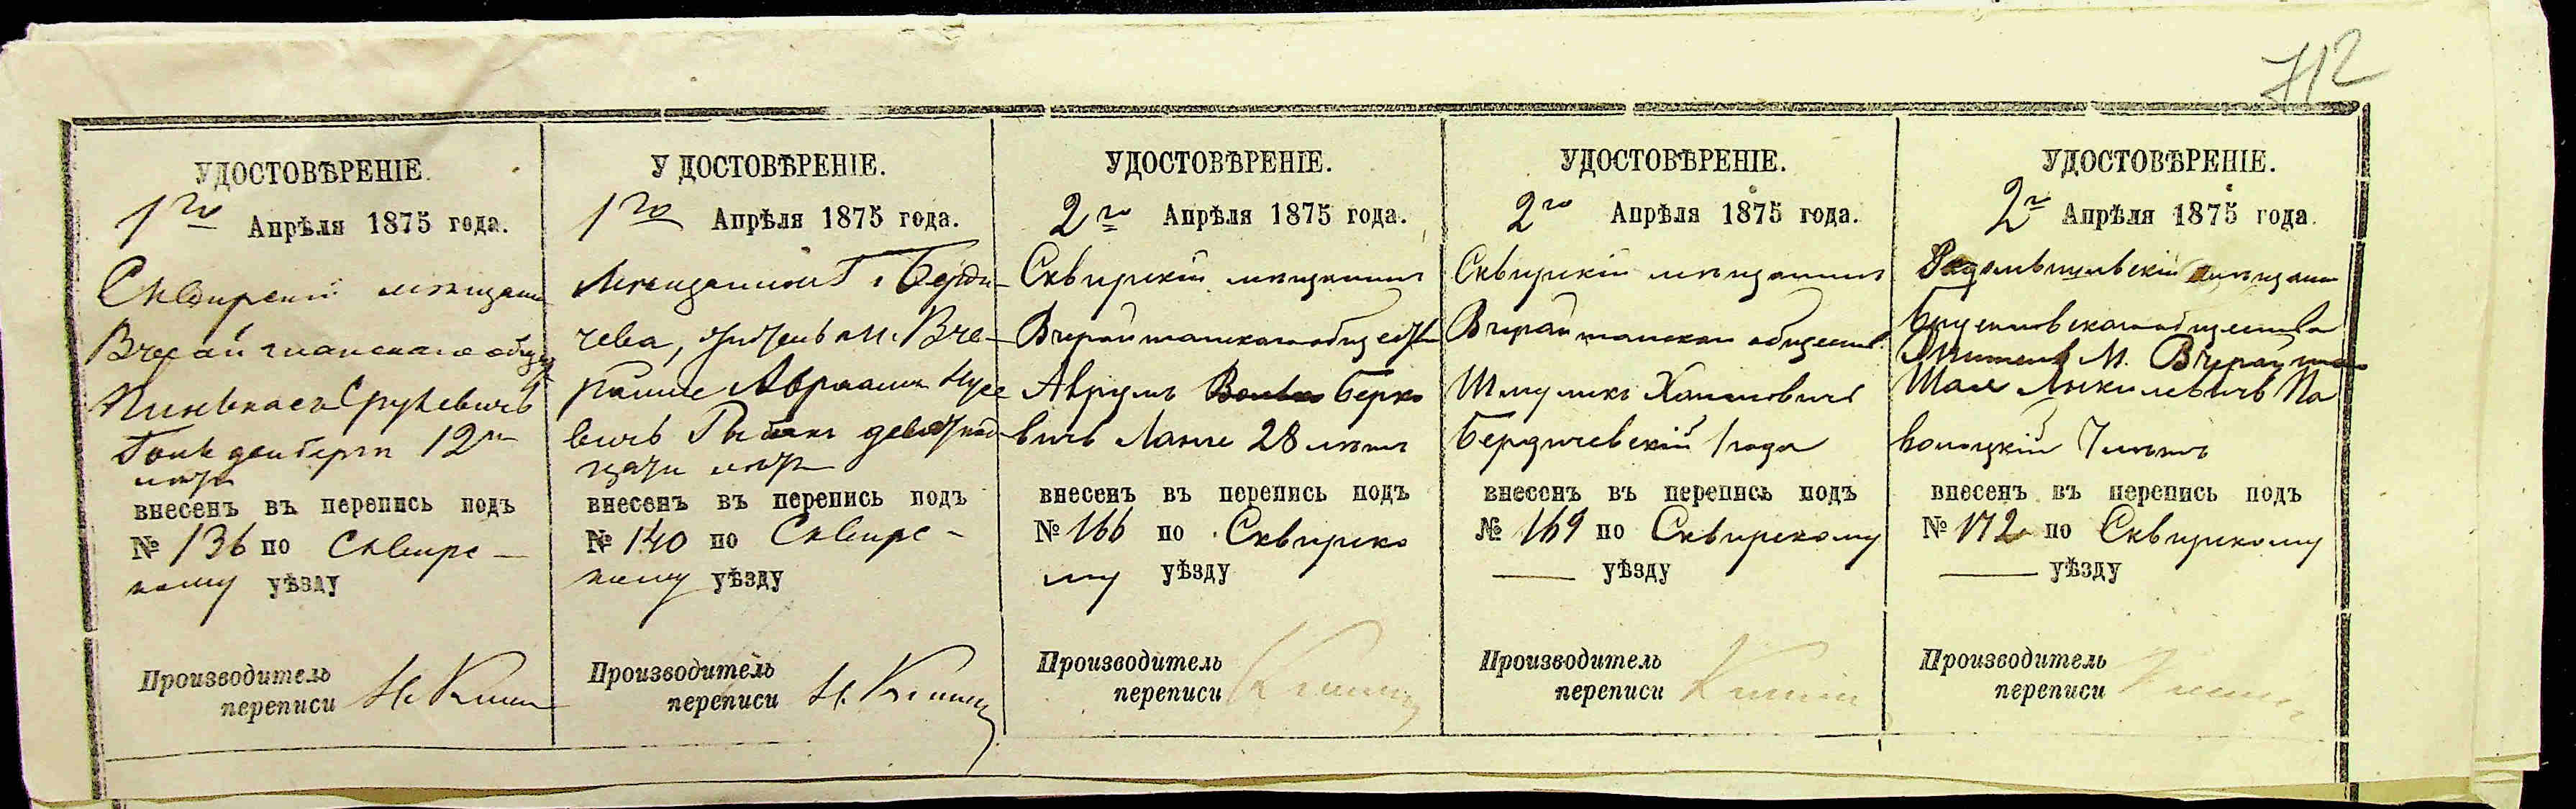 712
УДОСТОВѢРЕНІЕ.
1го Апрѣля 1875 года.
Сквирскій мѣщани
Вчерайшанскаго общ
Пинькасъ Срулевичъ
Гольденбергъ 12ти
лѣтъ
внесенъ въ перепись подъ
№ 136 по Сквирс-
кому уѣзду
Производитель
переписи
У ДОСТОВѢРЕНІЕ.
1го Апрѣля 1875 года.
Мѣщанинъ г. Берди-
чева, житель м. Вче-
райше Авраамъ
вичъ Рыбакъ девятнад-
цати лѣтъ
внесенъ въ перепись подъ
№ 140 по Сквирс-
кому уѣзду
Производитель
переписи
УДОСТОВѢРЕНІЕ.
2го Апрѣля 1875 года.
Сквирскій мѣщанинъ
Вчерайшанскаго общества
Аврумъ Берко
вичъ 28 лѣтъ
внесенъ въ перепись подъ
№ 166 по Сквирско
му уѣзду
Производитель
переписи
УДОСТОВѢРЕНІЕ.
2го Апрѣля 1875 года.
Сквирскій мѣщанинъ
Вчерайшанскаго обществ.
Шмуликъ Хаимовичъ
Бердичевскій 1 года
внесенъ въ перепись подъ
№ 169 по Сквирскому
уѣзду
Производитель
переписи
УДОСТОВѢРЕНІЕ.
2го Апрѣля 1875 года.
Радомысльскій мѣщани
Брусиловскаго общества
Житель М. Вчерайша
Шая Янкилевичъ Па
волоцкій 7 лѣтъ
внесенъ въ перепись подъ
№ 172 по Сквирскому
уѣзду
Производитель
переписи